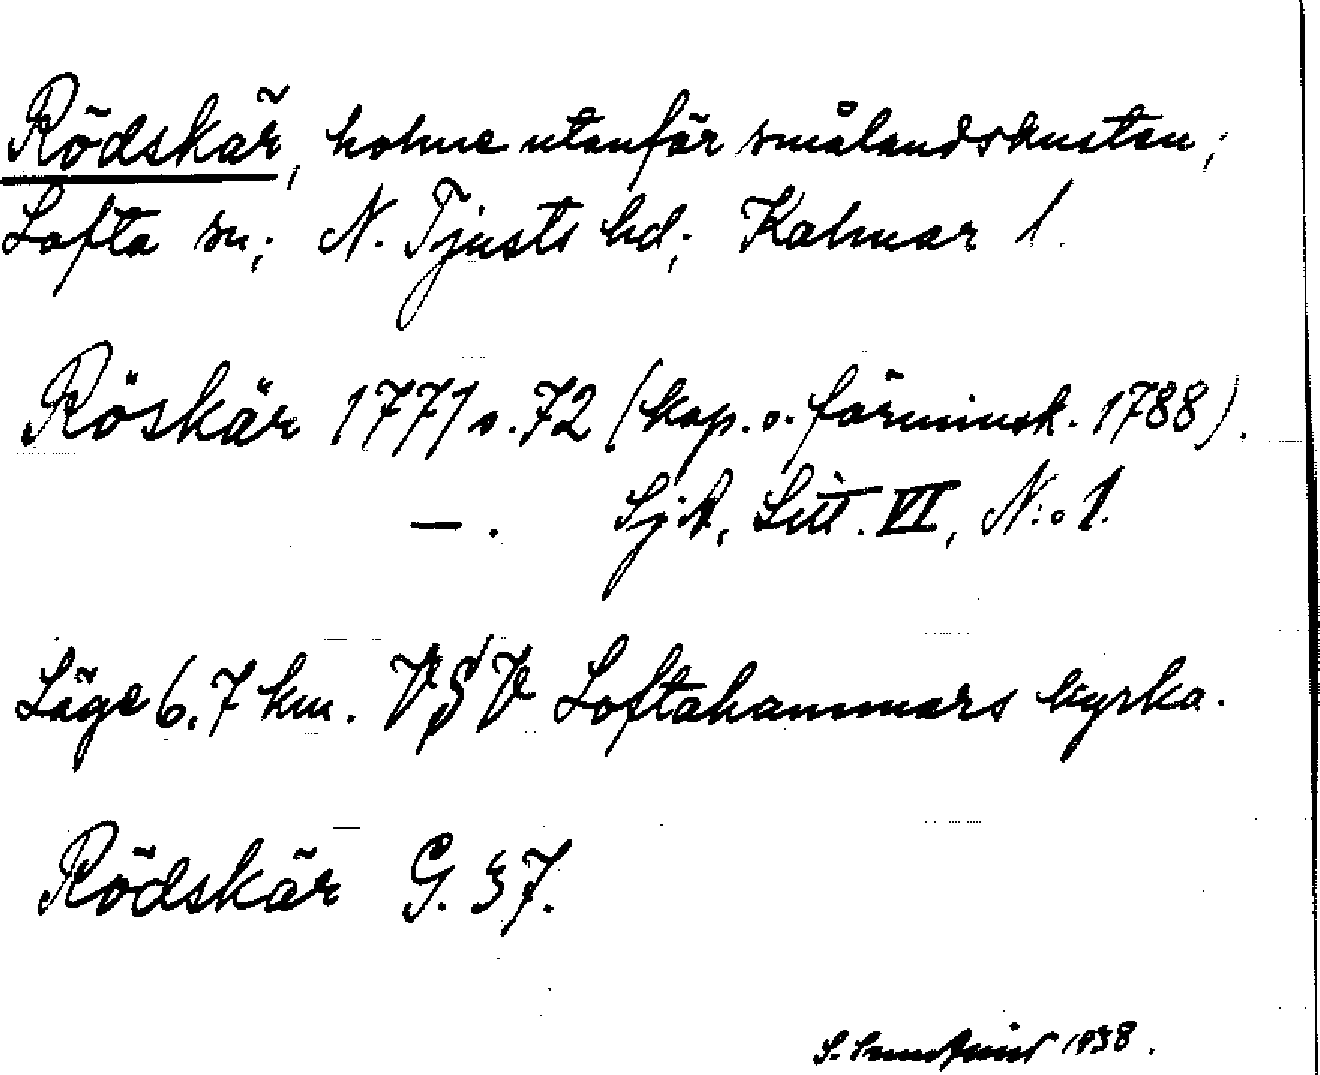 Rödskär, holme utanför smålandskusten;
Lofta sn; N. Tjusts hd; Kalmar l.
Röskär 1771 o. 72 (kop. o. förminsk. 1788).
—. Sjk, Litt. VI, N:o 1.
Läge 6,7 km. VSV Loftahammars kyrka.
Rödskär G. 37.
S. 1938.